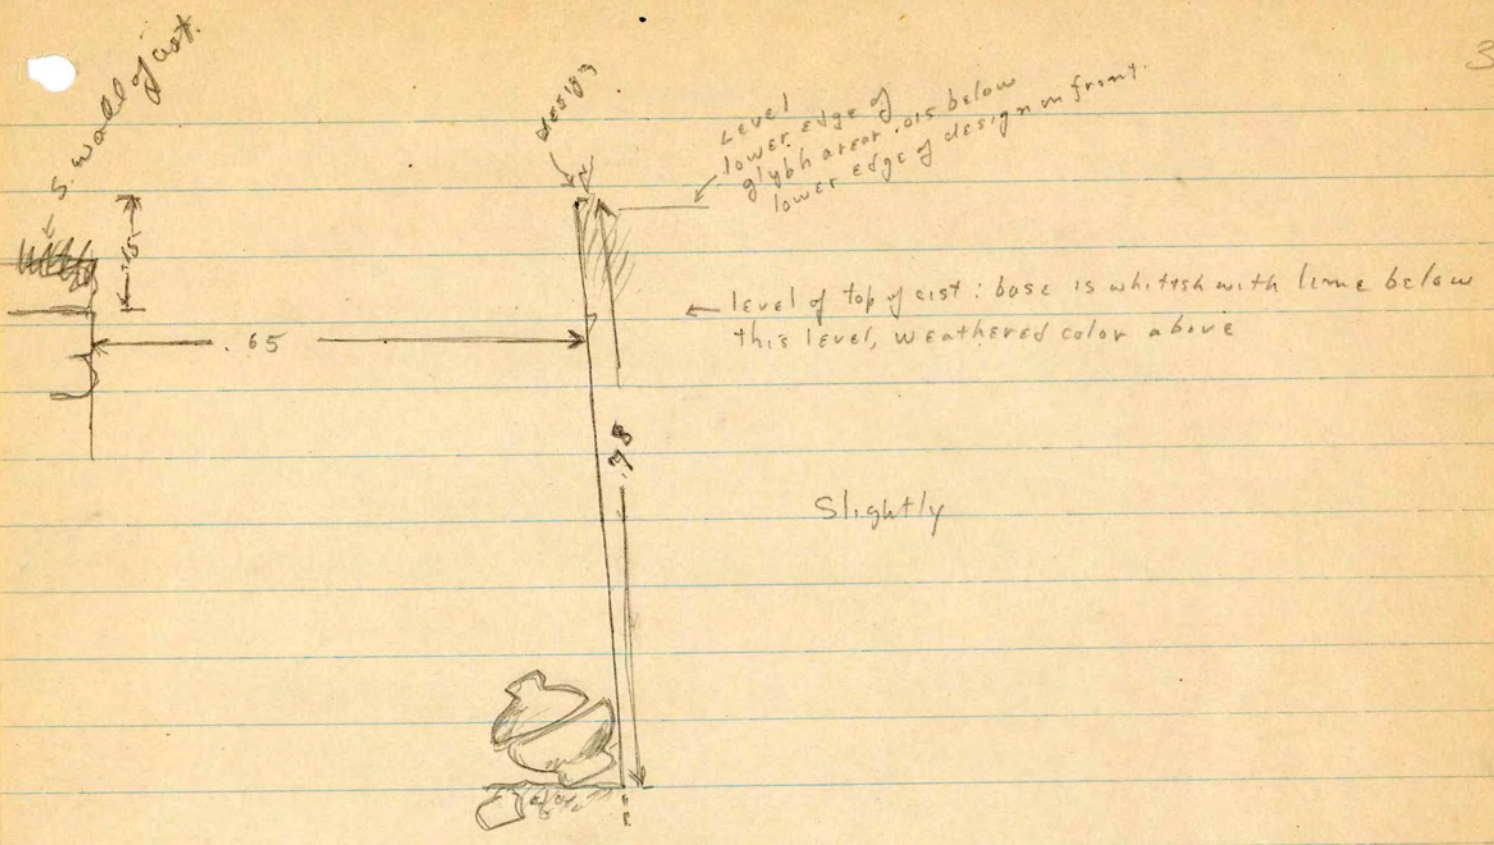 3
S. wall of cist.
design
Level
lower edge of
glybh area .015 below
lower edge of design on front.
.15
level of top of cist: base is whitish with lime below
this level, weathered color above
.65
.78
Slightly